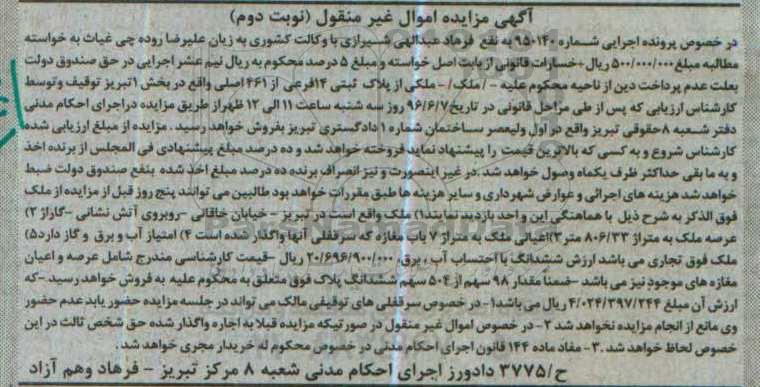 آگهی مزایده اموال غیر منقول (نوبت دوم)
در خصوص پرونده اجرایی شماره ۹۵۰۱۴۰ به نفع فرهاد عبدالهی شیرازی با وکالت کشوری به زیان علیرضا روده چی غیاث به خواسته
مطالبه مبلغ ۵۰۰/۰۰۰/۰۰۰ ریال +خسارات قانونی از بابت اصل خواسته و مبلغ ۵ درصد محکوم به ریال نیم عشر اجرایی در حق صندوق دولت
بعلت عدم پرداخت دین از ناحیه محکوم علیه -/ملک/- ملکی از پلاک ثبتی ۱۴فرعی از ۴۶۱ اصلی واقع در بخش ۱تبریز توقیف وتوسط
کارشناس ارزیابی که پس از طی مراحل قانونی در تاریخ ۹۶/۶/۷ روز سه شنبه ساعت ۱۱ الی ۱۲ ظهراز طریق مزایده دراجرای احکام مدنی
دفتر شعبه ۸حقوقی تبریز واقع در اول ولیعصر ساختمان شماره ۱ دادگستری تبریز بفروش خواهد رسید . مزایده از مبلغ ارزیابی شده
کارشناس شروع و به کسی که بالاترین قیمت را پیشنهاد نماید فروخته خواهد شد و ده درصد مبلغ پیشنهادی فی المجلس از برنده اخذ
و به ما بقی حداکثر ظرف یکماه وصول خواهد شد .در غیر اینصورت و نیز انصراف برنده ده درصد مبلغ اخذ شده بنفع صندوق دولت ضبط
خواهد شد هزینه های اجرائی و عوارض شهرداری و سایر هزینه ها طبق مقررات خواهد بود طالبین می توانند پنج روز قبل از مزایده از ملک
فوق الذکر به شرح ذیل با هماهنگی این واحد بازدید نمایند۱) ملک واقع است در تبریز - خیابان خاقانی -روبروی آتش نشانی -گاراژ ۲)
عرصه ملک به متراژ ۸۰۶/۳۳ متر ۳)اعیانی ملک به متراژ ۷ باب مغازه که سرقفلی آنها واگذار شده است ۴) امتیاز آب و برق و گاز دارد۵)
ملک فوق تجاری می باشد ارزش ششدانگ با احتساب آب ، برق، ۲۰/۶۹۶/۹۰۰/۰۰۰ ریال -قیمت کارشناسی مندرج شامل عرصه و اعیان
مغازه های موجود نیز می باشد -ضمنا مقدار ۹۸ سهم از ۵۰۴ سهم ششدانگ پلاک فوق متعلق به محکوم علیه به فروش خواهد رسید -که
ارزش آن مبلغ ۴/۰۲۴/۳۹۷/۲۴۴ ریال می باشد۱- در خصوص سرقفلی های توقیفی مالک می تواند در جلسه مزایده حضور یابد عدم حضور
وی مانع از انجام مزایده نخواهد شد ۲- در خصوص اموال غیر منقول در صورتیکه مزایده قبلا به اجاره واگذار شده حق شخص ثالث در این
خصوص لحاظ خواهد شد .۳- مفاد ماده ۱۴۴ قانون اجرای احکام مدنی در خصوص محکوم له خریدار مجری خواهد شد .
ح/۳۷۷۵ دادورز اجرای احکام مدنی شعبه ۸ مرکز تبریز - فرهاد وهم آزاد